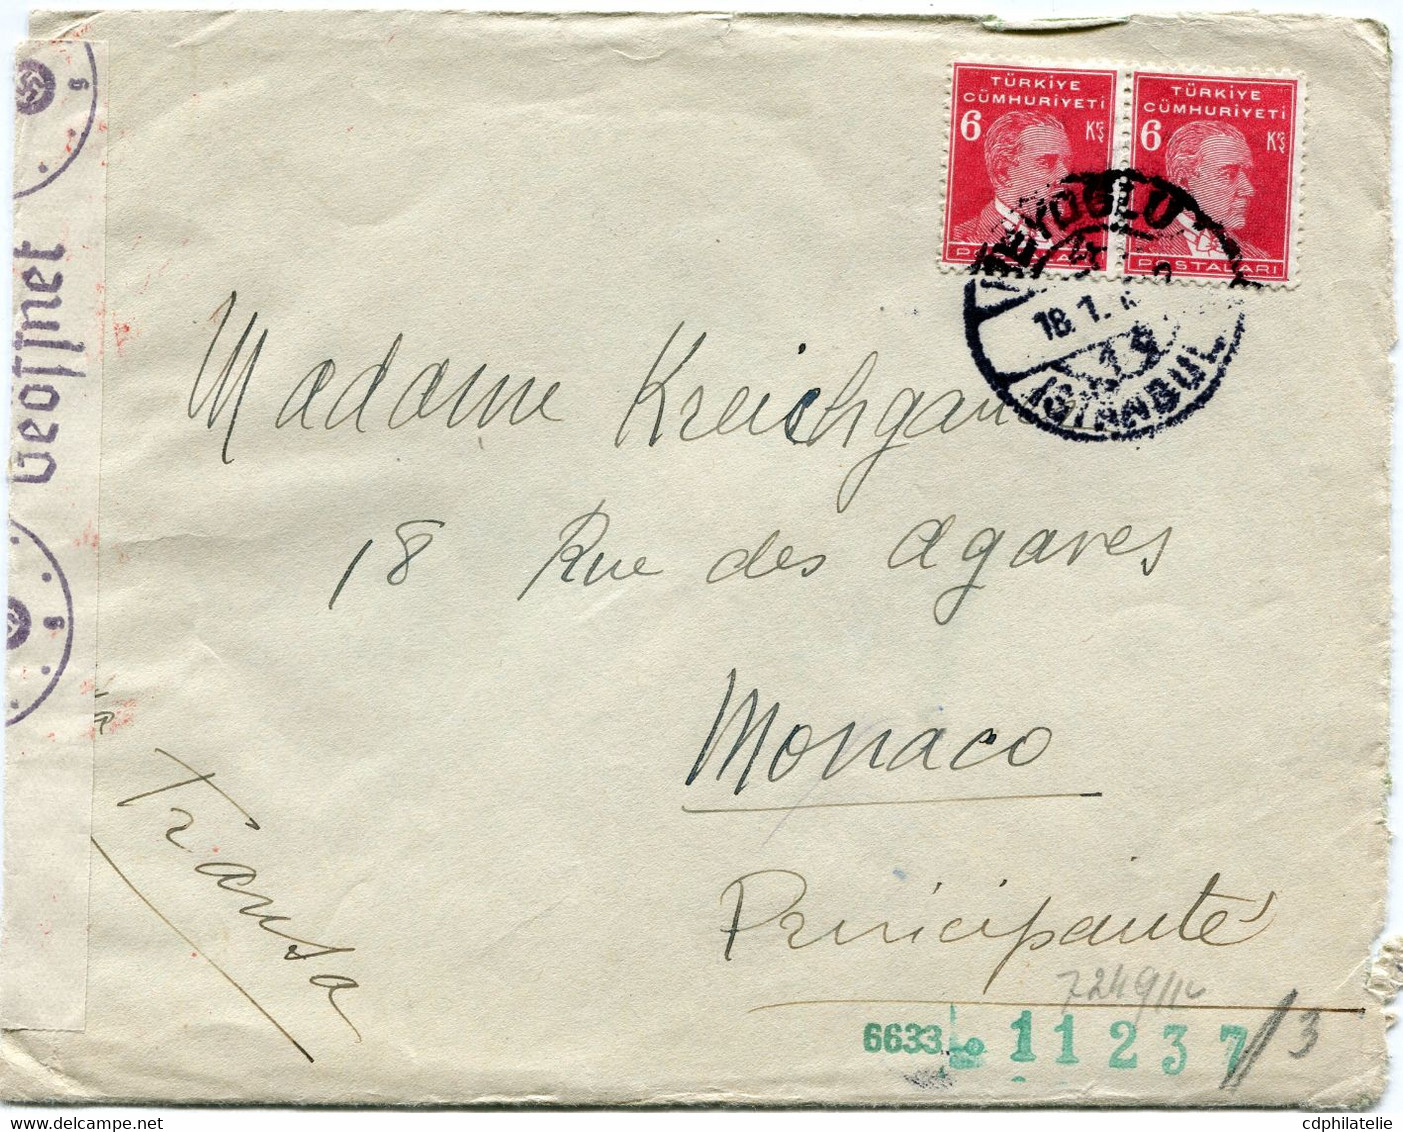 TÜRKİYE
CÜMHURİYETİ
6 Krş
POSTALARI
TÜRKİYE
CÜMHURİYETİ
6 Krş
POSTALARI
BEYOĞLU
18.1.
İSTANBUL
Geöffnet
g
g
Madame Kreichgau
18 Rue des agaves
Monaco
Principauté
Fransa
7249/
6633 11237
/3
cdphilatelie